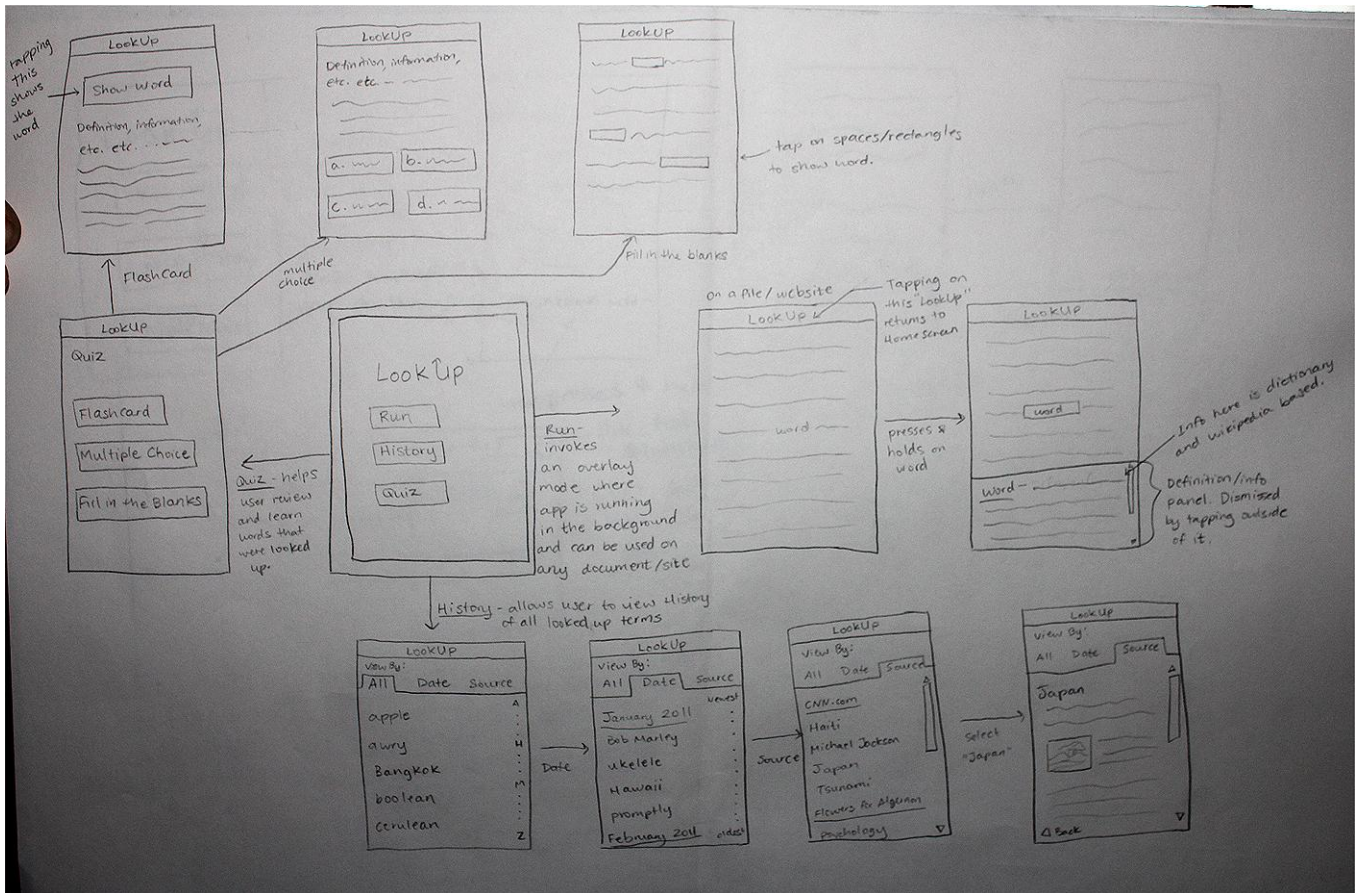 tapping
this
shows
the
word
LookUp
Show Word
Definition, information,
etc. etc. . . .
LookUp
Definition, information,
etc. etc. -
a.
b.
c.
d.
LookUp
tap on spaces/rectangles
to show word.
FlashCard
multiple
choice
Fill in the blanks
LookUp
Quiz
Flashcard
Multiple Choice
Fill in the Blanks
Quiz - helps
user review
and learn
words that
were looked
up.
LookUp
Run
History
Quiz
Run-
invokes
an overlay
mode where
app is running
in the background
and can be used on
any document/site
on a file/website
LookUp
word
Tapping on
this "LookUp"
returns to
Homescreen
presses &
holds on
word
LookUp
word
word-
Info here is dictionary
and wikipedia based.
Definition/info
panel. Dismissed
by tapping outside
of it.
History - allows user to view History
of all looked up terms
LookUp
View By:
All Date Source
apple
awry
Bangkok
boolean
cerulean
A
H
M
Z
Date
LookUp
View By:
All Date Source
newest
January 2011
Bob Marley
ukelele
Hawaii
promptly
February 2011 oldest
Source
LookUp
View By:
All Date Source
CNN.com
Haiti
Michael Jackson
Japan
Tsunami
Flowers for Algernon
psychology
Select
"Japan"
LookUp
View By:
All Date Source
Japan
Back